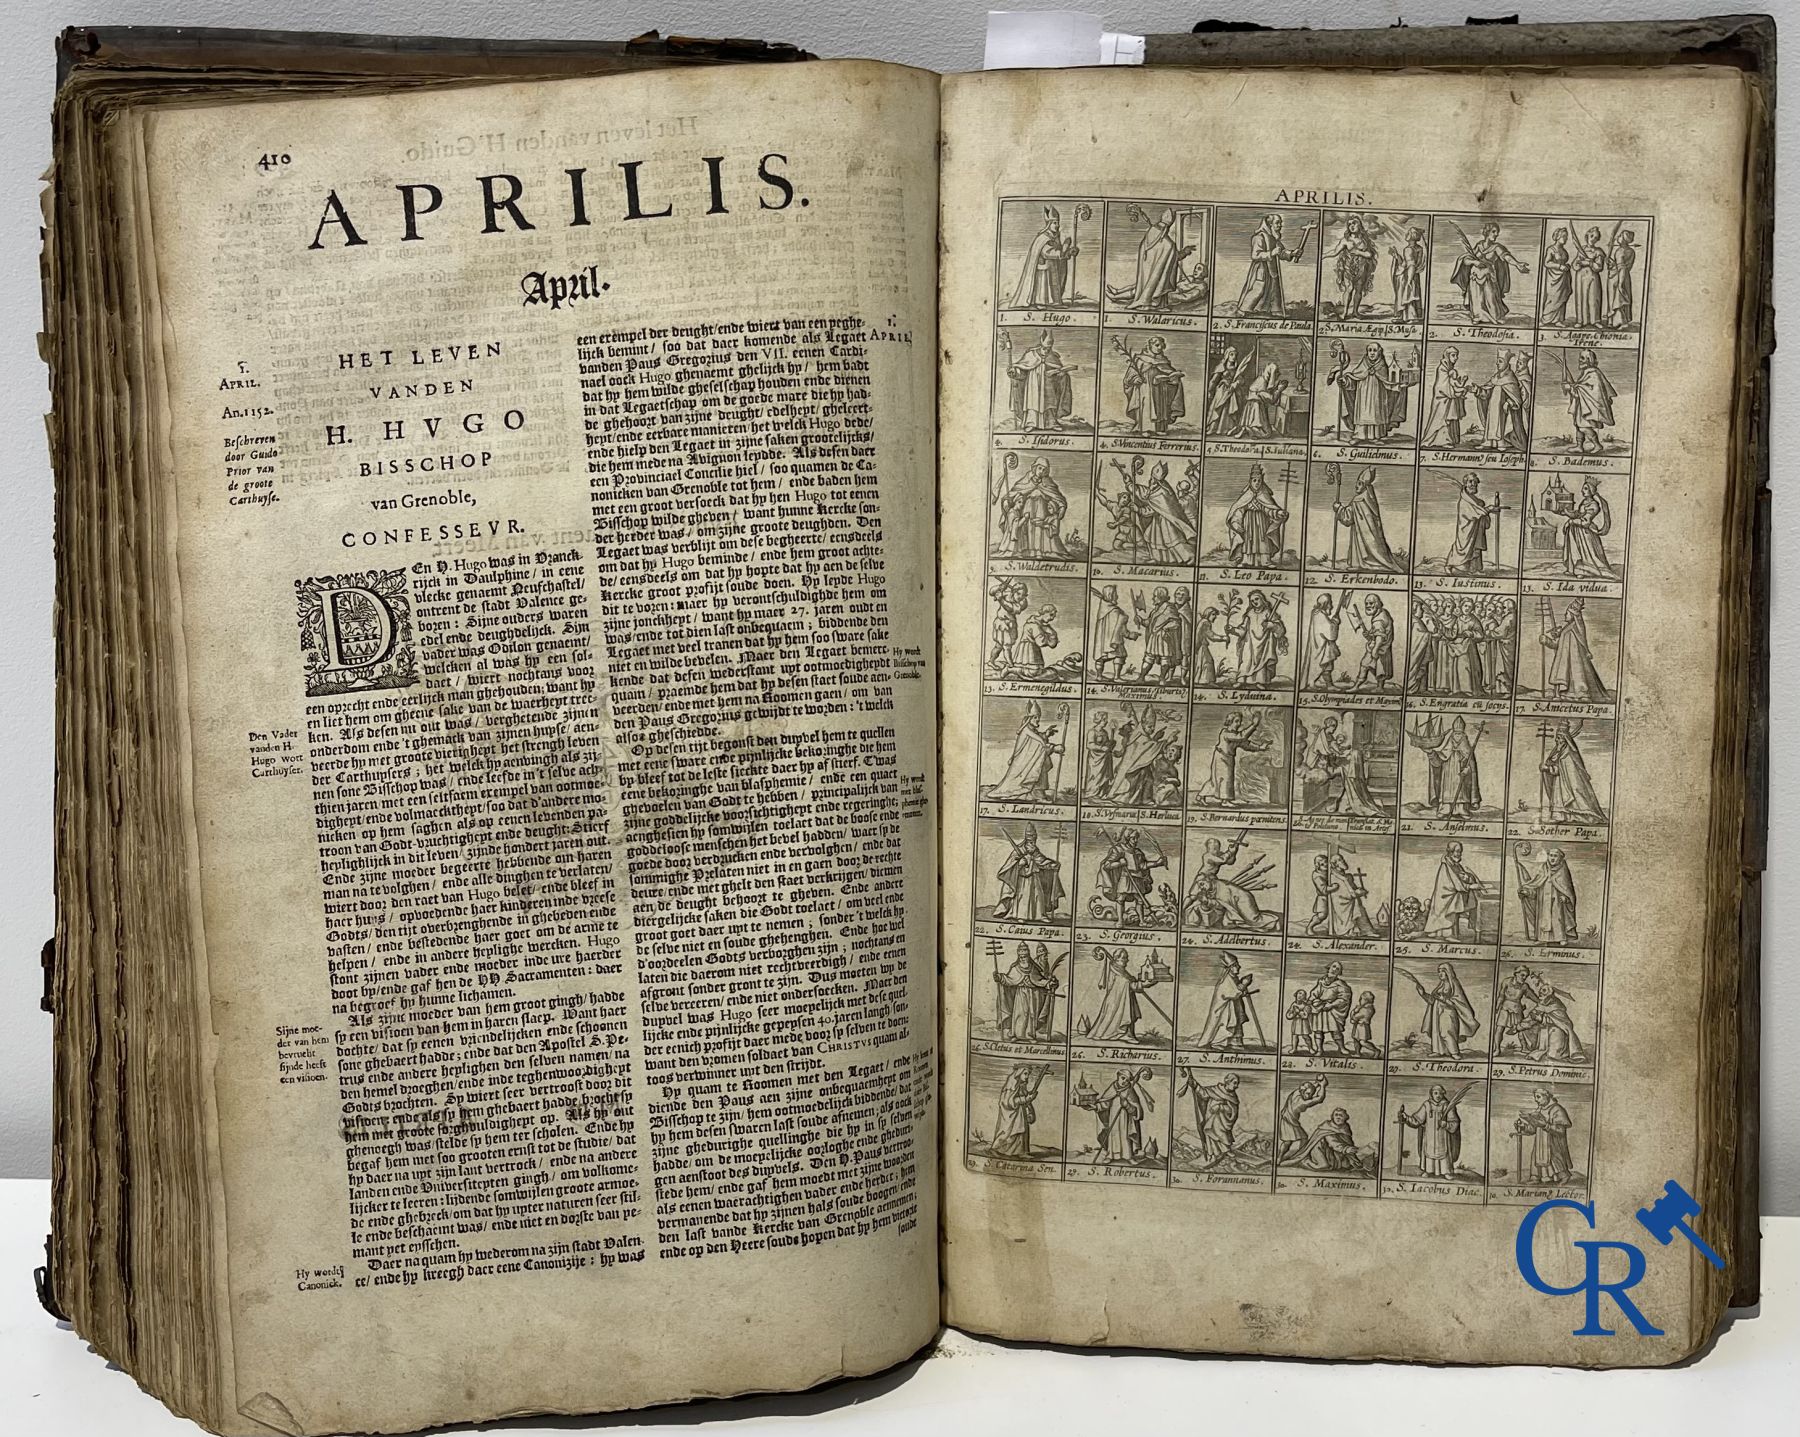 410
APRILIS.
April.
1.
APRIL.
An. 1152.
Beschreven
door Guido
Prior van
de groote
Carthuyse.
HET LEVEN
VANDEN
H. HVGO
BISSCHOP
van Grenoble,
CONFESSEVR.
DEn H. Hugo was in Vranck-
rijck in Daulphine / in eene
vlecke genaemt Neufchastel /
ontrent de stadt Valence ge-
boren : Sijne ouders waren
edel ende deughdelijck. Sijn
vader was Odilon genaemt /
welcken al was hy een sol-
daet / wiert nochtans voor
een oprecht ende eerlijck man ghehouden; want hy
en liet hem om gheene sake van de waerheyt trec-
ken. Als desen nu out was / verghetende zijnen
onderdom ende 't ghemack van zijnen huyse / aen-
veerde hy met groote vierigheyt het strengh leven
der Carthuysers ; het welck hy aenvingh als zij-
nen sone Bisschop was / ende leefde in 't selve ach-
thien jaren met een seltsaem exempel van ootmoe-
digheyt / ende volmaecktheyt / soo dat d'andere mo-
nicken op hem saghen als op eenen levenden pa-
troon van Godt-vruchtigheyt ende deught: Stierf
heylighlijck in dit leven / zijnde hondert jaren out.
Ende zijne moeder begeerte hebbende om haren
man na te volghen / ende alle dinghen te verlaten /
wiert door den raet van Hugo belet / ende bleef in
haer huys / opvoedende haer kinderen inde vreese
Godts / den tijt overbrenghende in ghebeden ende
vasten / ende bestedende haer goet om de arme te
helpen / ende in andere heylighe wercken. Hugo
stont zijnen vader ende moeder inde ure haerder
doot by / ende gaf hen de HH Sacramenten : daer
na begroef hy hunne lichamen.
Als zijne moeder van hem groot gingh / hadde
sy een visioen van hem in haren slaep. Want haer
dochte / dat sy eenen vriendelijcken ende schoonen
sone ghebaert hadde ; ende dat den Apostel S. Pe-
trus ende andere heylighen den selven namen / na
den hemel droeghen / ende inde teghenwoordigheyt
Godts brochten. Sy wiert seer vertroost door dit
visioen: ende als sy hem ghebaert hadde brocht sy
hem met groote sorghvuldigheyt op. Als hy out
ghenoegh was / stelde sy hem ter scholen. Ende hy
begaf hem met soo grooten ernst tot de studie / dat
hy daer na uyt zijn lant vertrock / ende na andere
landen ende Vniversiteyten gingh / om volkome-
lijcker te leeren : lijdende somwijlen groote armoe-
de ende ghebreck / om dat hy uyter naturen seer stil-
le ende beschaemt was / ende niet en dorste van ye-
mant yet eysschen.
Daer na quam hy wederom na zijn stadt Valen-
ce / ende hy kreegh daer eene Canonizije : hy was
Den Vader
vanden H.
Hugo wort
Carthuyser.
Sijne moe-
der van hem
bevrucht
sijnde heeft
een visioen.
Hy wordt
Canonick.
een exempel der deught / ende wiert van een yeghe-
lijck bemint / soo dat daer komende als Legaet
vanden Paus Gregorius den VII. eenen Cardi-
nael oock Hugo ghenaemt ghelijck hy / hem badt
dat hy hem wilde gheselschap houden ende dienen
in dat Legaetschap om de goede mare die hy had-
de ghehoort van zijne deught / edelheyt / gheleert-
heyt / ende eerbare manieren / het welck Hugo dede /
ende hielp den Legaet in zijne saken grootelijcks /
die hem mede na Avignon leydde. Als desen daer
een Provinciael Concilie hiel / soo quamen de Ca-
nonicken van Grenoble tot hem / ende baden hem
met een groot versoeck dat hy hen Hugo tot eenen
Bisschop wilde gheven / want hunne Kercke son-
der herder was / om zijne groote deughden. Den
Legaet was verblijt om dese begheerte / eensdeels
om dat hy Hugo beminde / ende hem groot achte-
de / eensdeels om dat hy hopte dat hy aen de selve
Kercke groot profijt soude doen. Hy leyde Hugo
dit te voren : maer hy verontschuldighde hem om
zijne jonckheyt / want hy maer 27. jaren oudt en
was / ende tot dien last onbequaem ; biddende den
Legaet met veel tranen dat hy hem soo sware sake
niet en wilde bevelen. Maer den Legaet bemerc-
kende dat desen wederstant uyt ootmoedigheydt
quam / praemde hem dat hy desen staet soude aen-
veerden / ende met hem na Roomen gaen / om van
den Paus Gregorius gewijdt te worden : 't welck
alsoo gheschiedde.
Op desen tijt begonst den duyvel hem te quellen
met eene sware ende pijnlijcke bekoringhe die hem
by bleef tot de leste sieckte daer hy af stierf. 't was
eene bekoringhe van blasphemie / ende een quaet
ghevoelen van Godt te hebben / principalijck van
zijne goddelijcke voorsichtigheyt ende regeringhe;
aenghesien hy somwijlen toelaet dat de boose ende
goddeloose menschen het bevel hadden / waer by de
goede door verdrucken ende vervolghen / ende dat
sommighe Prelaten niet in en gaen door de rechte
deure / ende met ghelt den staet verkrijgen / diemen
aen de deught behoort te gheven. Ende andere
diergelijcke saken die Godt toelaet / om veel ende
groot goet daer uyt te nemen ; sonder 't welck hy
de selve niet en soude ghehenghen. Ende hoe wel
d'oordeelen Godts verborghen zijn ; nochtans en
laten die daerom niet rechtveerdigh / ende eenen
afgront sonder gront te zijn. Dus moeten wy de
selve vereeren / ende niet ondersoecken. Maer den
duyvel was Hugo seer moeyelijck met dese quel-
lijcke ende pijnlijcke gepeysen 40. jaren langh son-
der eenich profijt daer mede voor sy selven te doen:
want den vromen soldaet van CHRISTVS quam al-
toos verwinner uyt den strijdt.
Hy quam te Roomen met den Legaet / ende
diende den Paus aen zijne onbequaemheyt om
Bisschop te zijn / hem ootmoedelijck biddende / dat
hy hem desen swaren last soude afnemen; als oock
zijne ghedurighe quellinghe die hy in sy selven
hadde / om de moeyelijcke oorloghe ende ghedurі-
gen aenstoot des duyvels. Den H. Paus vertroo-
stede hem / ende gaf hem moedt met zijne woorden
als eenen waerachtighen vader ende herder ; hem
vermanende dat hy zijnen hals soude boogen / ende
den last vande Kercke van Grenoble aennemen;
ende op den Heere soude hopen dat hy hem victorie
soude
1.
APRIL.
Hy wordt
Bisschop van
Grenoble.
APRILIS.
1. S. Hugo.
1. S. Walaricus.
2. S. Franciscus de Paula.
2. S. Maria Ægyp. S. Musa.
2. S. Theodosia.
3. S. Agape, Chionia, Irene.
4. S. Isidorus.
4. S. Vincentius Ferrerius.
5. S. Theodora. S. Iuliana.
6. S. Guilielmus.
7. S. Hermann9 seu Ioseph.
8. S. Bademus.
9. S. Waldetrudis.
10. S. Macarius.
11. S. Leo Papa.
12. S. Erkenbodo.
13. S. Iustinus.
13. S. Ida vidua.
13. S. Ermenegildus.
14. S. Valerianus, Tiburti9, Maximus.
14. S. Lyduina.
15. S. Olympiades et Maxim9
16. S. Engratia cū socys.
17. S. Anicetus Papa.
17. S. Landricus.
18. S. Vsmarus S. Herluca.
19. S. Bernardus pœnitens.
21. S. Anselmus.
22. S. Sother Papa.
22. S. Caius Papa.
23. S. Georgius.
24. S. Adelbertus.
24. S. Alexander.
25. S. Marcus.
26. S. Erminus.
26. S. Cletus et Marcellinus
26. S. Richarius.
27. S. Anthimus.
28. S. Vitalis.
29. S. Theodora.
29. S. Petrus Dominic.
29. S. Catarina Sen.
29. S. Robertus.
30. S. Forannanus.
30. S. Maximus.
30. S. Iacobus Diac.
30. S. Marian9 Lector.
CR